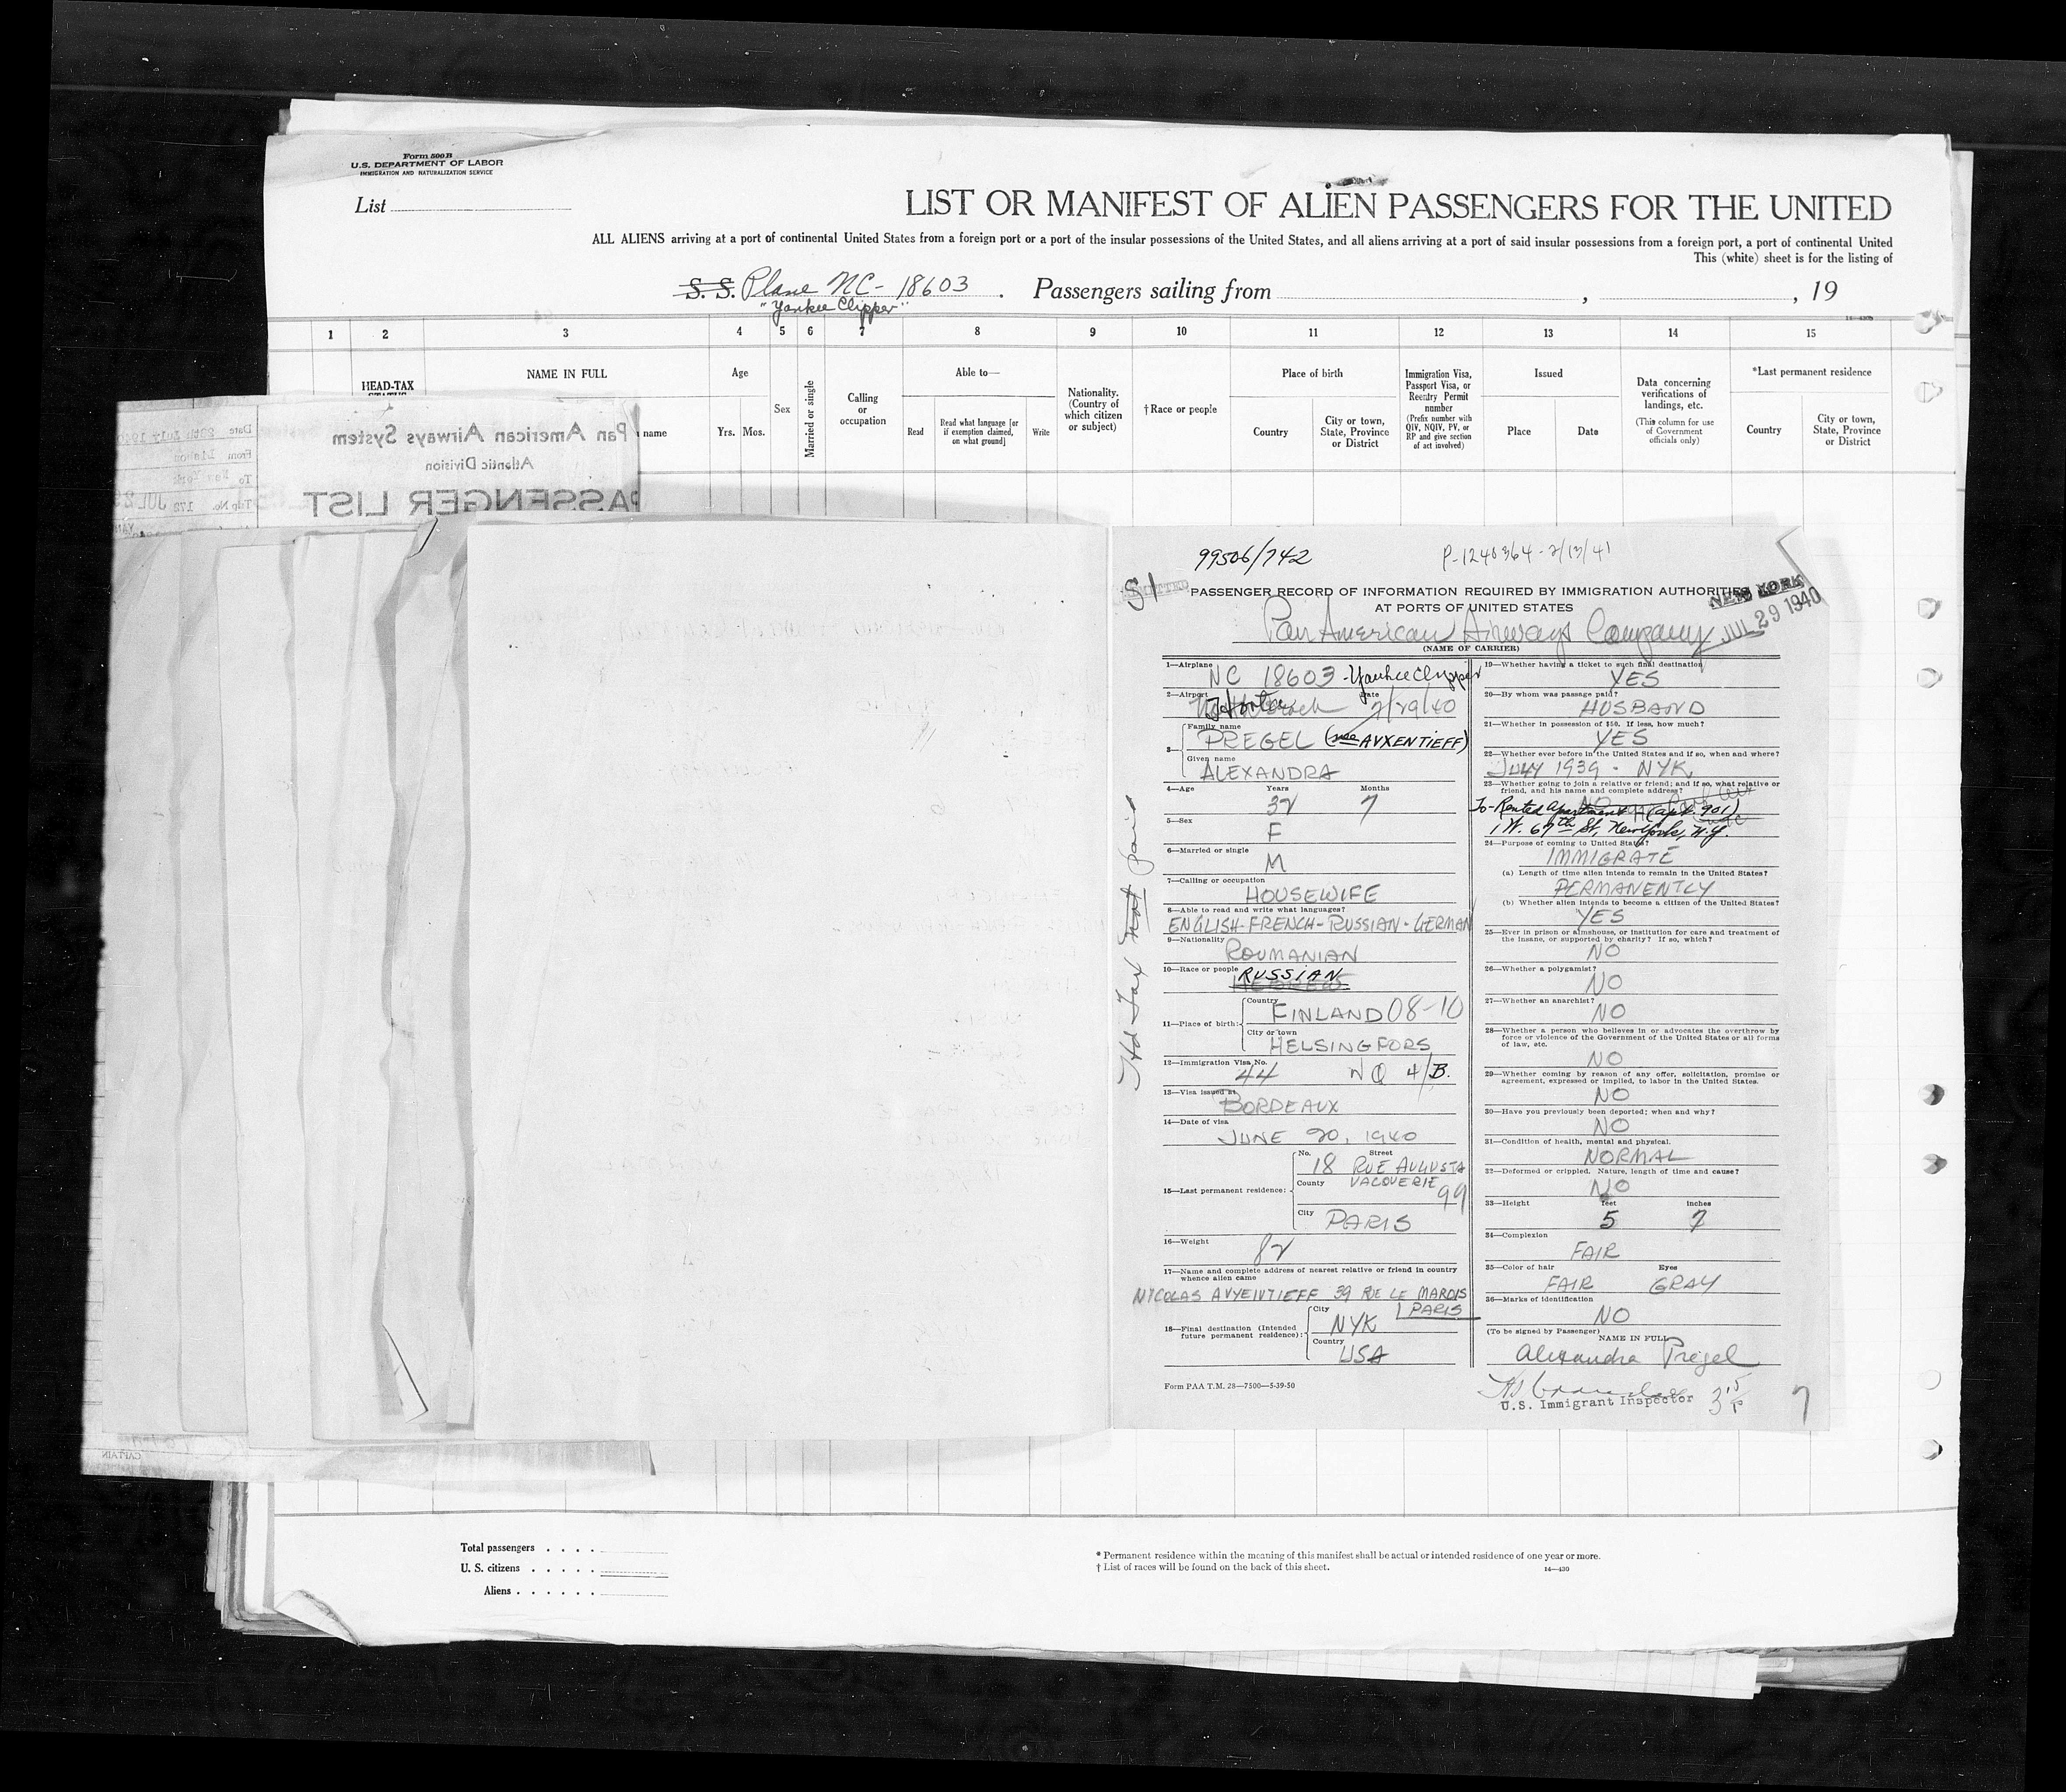 Form 500 B
U.S. DEPARTMENT OF LABOR
IMMIGRATION AND NATURALIZATION SERVICE
List
LIST OR MANIFEST OF ALIEN PASSENGERS FOR THE UNITED
ALL ALIENS arriving at a port of continental United States from a foreign port or a port of the insular possessions of the United States, and all aliens arriving at a port of said insular possessions from a foreign port, a port of continental United
This (white) sheet is for the listing of
S. S. Plane NC-18603. Passengers sailing from , , 19
"Yankee Clipper"
1 2 3 4 5 6 7 8 9 10 11 12 13 14 15
HEAD-TAX
STATUS
NAME IN FULL
name
Age
Yrs. Mos.
Sex
Married or single
Calling
or
occupation
Able to—
Read
Read what language [or
if exemption claimed,
on what ground]
Write
Nationality.
(Country of
which citizen
or subject)
† Race or people
Place of birth
Country
City or town,
State, Province
or District
Immigration Visa,
Passport Visa, or
Reentry Permit
number
(Prefix number with
QIV, NQIV, PV, or
RP and give section
of act involved)
Issued
Place
Date
Data concerning
verifications of
landings, etc.
(This column for use
of Government
officials only)
*Last permanent residence
Country
City or town,
State, Province
or District
Pan American Airways System
Atlantic Division
PASSENGER LIST
Date 28th July 1940
From Lisbon
To New York
Trip No. 172 JUL 2
99506/742
P-1240364-2/13/41
S1
ADMITTED
PASSENGER RECORD OF INFORMATION REQUIRED BY IMMIGRATION AUTHORITIES
AT PORTS OF UNITED STATES
NEW YORK
JUL 29 1940
Pan American Airways Company
(NAME OF CARRIER)
Hd Tax not paid
1—Airplane NC 18603 - Yankee Clipper
2—Airport Horta Date 7/29/40
3— Family name PREGEL (nee AVXENTIEFF)
Given name ALEXANDRA
4—Age Years 32 Months 7
5—Sex F
6—Married or single M
7—Calling or occupation HOUSEWIFE
8—Able to read and write what languages?
ENGLISH-FRENCH-RUSSIAN-GERMAN
9—Nationality ROUMANIAN
10—Race or people RUSSIAN
HEBREW
11—Place of birth: Country FINLAND 08-10
City or town HELSINGFORS
12—Immigration Visa No. 44 NQ 4/B.
13—Visa issued at BORDEAUX
14—Date of visa JUNE 20, 1940
15—Last permanent residence: No. Street
18 RUE AUGUSTA
County VACQUERIE 99
City PARIS
16—Weight 82
17—Name and complete address of nearest relative or friend in country
whence alien came
NYCOLAS AVXENTIEFF 39 RUE LE MAROIS
PARIS
18—Final destination (Intended
future permanent residence): City NYK
Country USA
Form PAA T.M. 28—7500—5-39-50
19—Whether having a ticket to such final destination
YES
20—By whom was passage paid?
HUSBAND
21—Whether in possession of $50. If less, how much?
YES
22—Whether ever before in the United States and if so, when and where?
JULY 1939 - NYK
23—Whether going to join a relative or friend; and if so, what relative or
friend, and his name and complete address?
To-Rented Apartment (apt. 901)
1 W. 67th St., New York, N.Y.
24—Purpose of coming to United States?
IMMIGRATE
(a) Length of time alien intends to remain in the United States?
PERMANENTLY
(b) Whether alien intends to become a citizen of the United States?
YES
25—Ever in prison or almshouse, or institution for care and treatment of
the insane, or supported by charity? If so, which?
NO
26—Whether a polygamist?
NO
27—Whether an anarchist?
NO
28—Whether a person who believes in or advocates the overthrow by
force or violence of the Government of the United States or all forms
of law, etc.
NO
29—Whether coming by reason of any offer, solicitation, promise or
agreement, expressed or implied, to labor in the United States.
NO
30—Have you previously been deported; when and why?
NO
31—Condition of health, mental and physical.
NORMAL
32—Deformed or crippled. Nature, length of time and cause?
NO
33—Height feet 5 inches 7
34—Complexion
FAIR
35—Color of hair FAIR Eyes GRAY
36—Marks of identification
NO
(To be signed by Passenger)
NAME IN FULL
Alexandra Pregel
U.S. Immigrant Inspector
7
CAPTAIN
Total passengers . . . .
U. S. citizens . . . . .
Aliens . . . . . .
* Permanent residence within the meaning of this manifest shall be actual or intended residence of one year or more.
† List of races will be found on the back of this sheet.
14—430